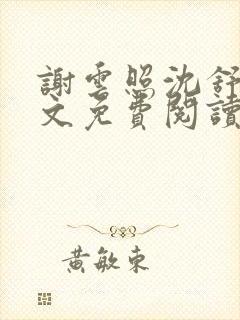 謝雲照沈舒
文免費閱讀
黃敏東